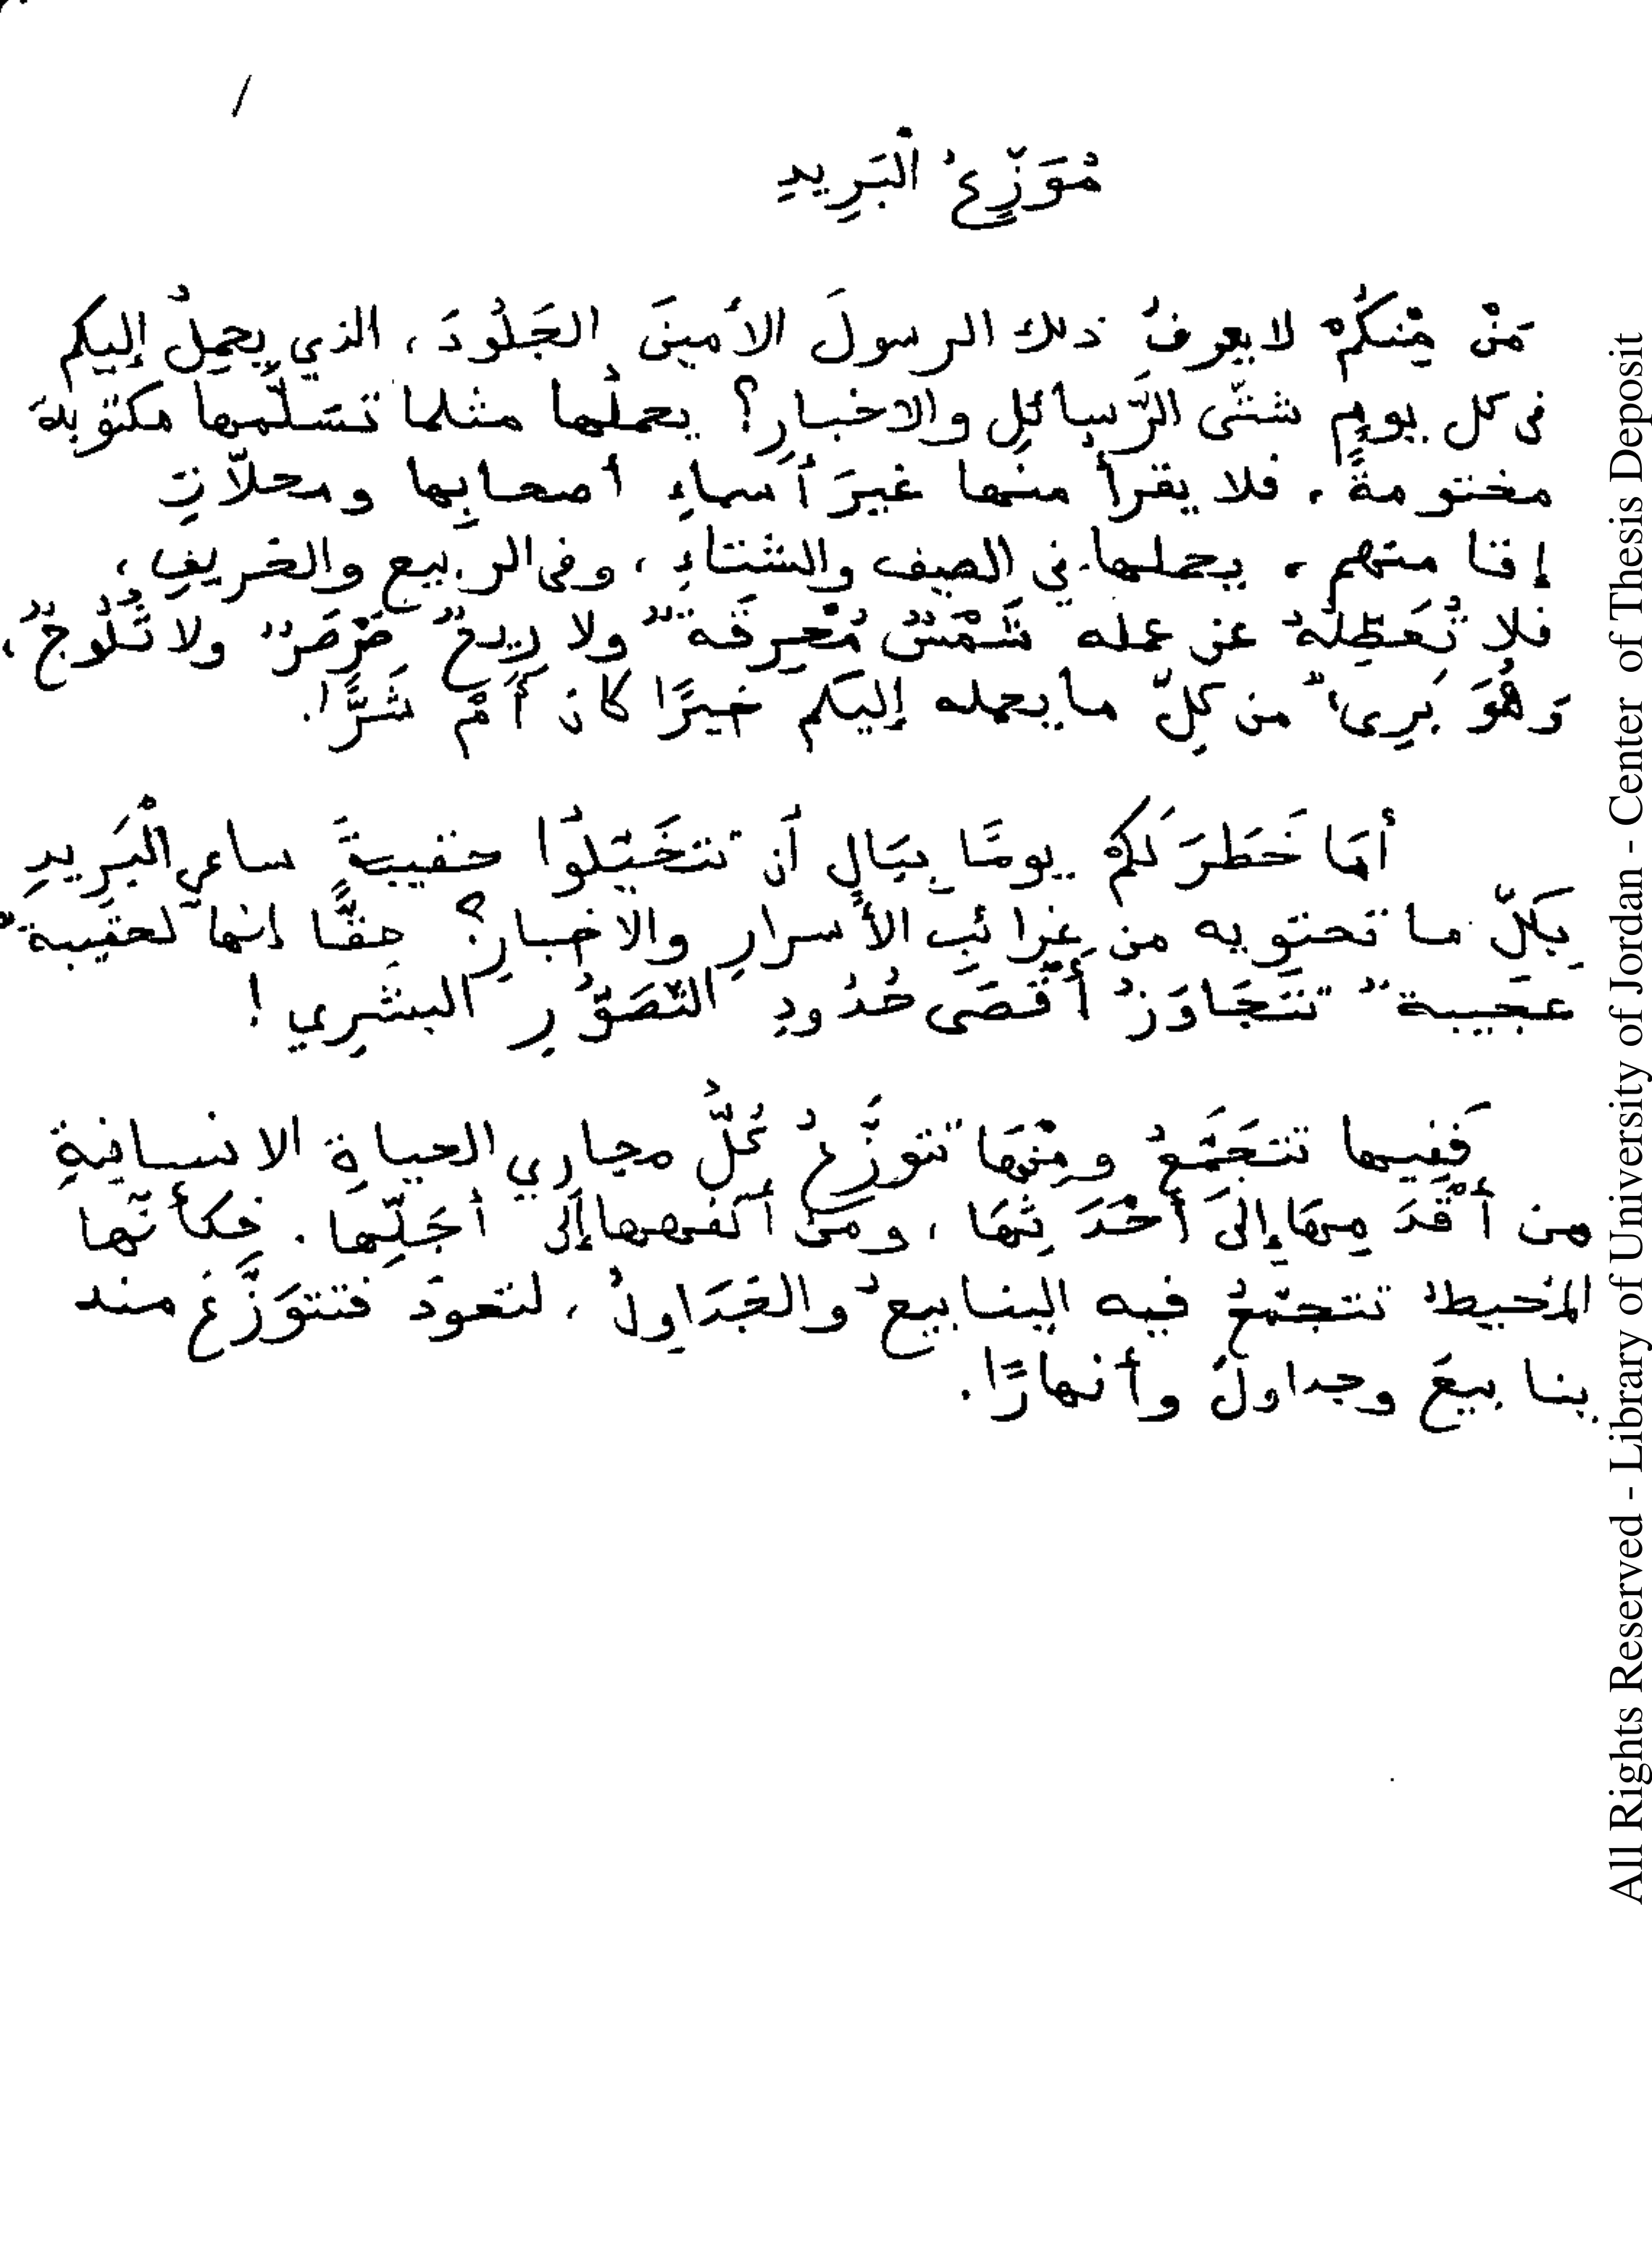 مُوَزِّعُ الْبَرِيدِ
مَنْ مِنْكُمْ لا يعرفُ ذلك الرسولَ الأمينَ الجَلُودَ، الذي يحمِلُ إليكم
في كل يومٍ شتّى الرَّسائلِ والاخبارِ؟ يحملُها مثلما تسَلَّمها مكتوبةً
مختومةً، فلا يقرأ منها غيرَ أسماءِ أصحابِها ومحلاّتِ
إقامتهم، يحملها في الصيف والشتاءِ، وفي الربيع والخريفِ،
فلا تُعَطِّلُهُ عن عمله شَمْسٌ مُحْرِقَةٌ ولا رِيحٌ صَرْصَرٌ ولا ثُلُوجٌ،
وَهُوَ بَرِيءٌ من كلِّ ما يحمله إليكم خيرًا كان أَمْ شَرًّا.
أمَا خَطَرَ لَكُمْ يومًا بِبَالٍ أن تتخَيَّلُوا حقيبةَ ساعي الْبَرِيدِ
بِكلِّ ما تحتويه من غرائبِ الأسرارِ والاخبارِ؟ حقًّا إنها لحقيبةٌ
عجيبةٌ تتجَاوَزُ أَقْصَى حُدُودِ التَّصَوُّرِ البشَرِي !
فَفِيها تتجَمَّعُ ومِنْهَا تتوزَّعُ كُلُّ مجاري الحياةِ الانسانيةِ
من أَقْدَمِهَا إلىَ أَحْدَثِهَا، ومن أتفهها إلى أجَلِّها. فكأنّها
المُحيطُ تتجمّعُ فيه الينابيعُ والجَدَاولُ، لتعودَ فتتوَزَّعَ منه
ينابيعَ وجداولَ وأنهارًا.
All Rights Reserved - Library of University of Jordan - Center of Thesis Deposit